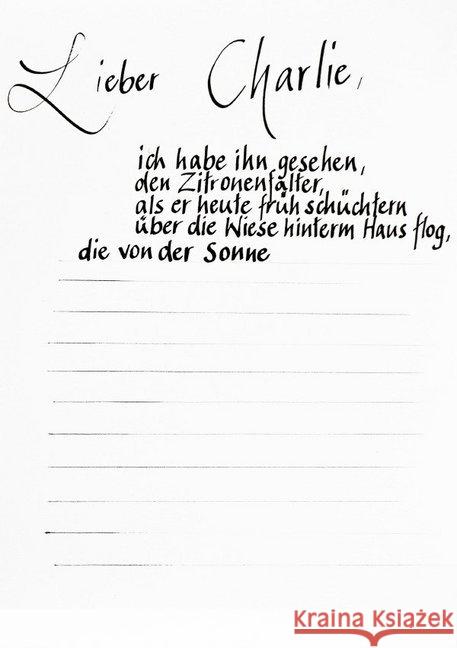 Lieber Charlie,
ich habe ihn gesehen,
den Zitronenfalter,
als er heute früh schüchtern
über die Wiese hinterm Haus flog,
die von der Sonne
KRÁSNÉ KNIHY.CZ